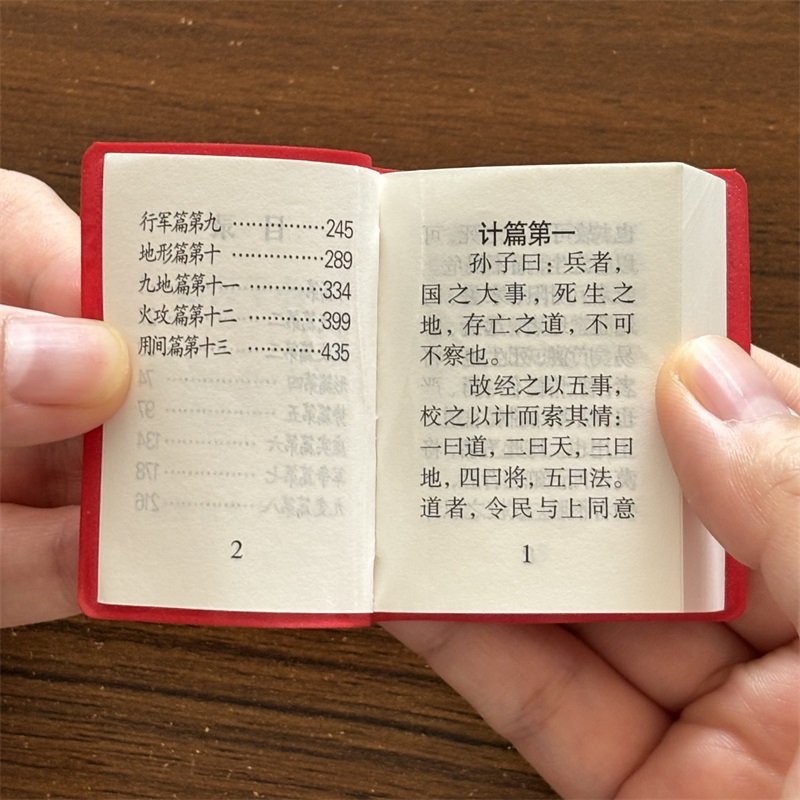 行军篇第九 ……………245
地形篇第十 ……………289
九地篇第十一 …………334
火攻篇第十二 …………399
用间篇第十三 …………435
2
计篇第一
孙子曰：兵者，
国之大事，死生之
地，存亡之道，不可
不察也。
故经之以五事，
校之以计而索其情：
一曰道，二曰天，三曰
地，四曰将，五曰法。
道者，令民与上同意
1